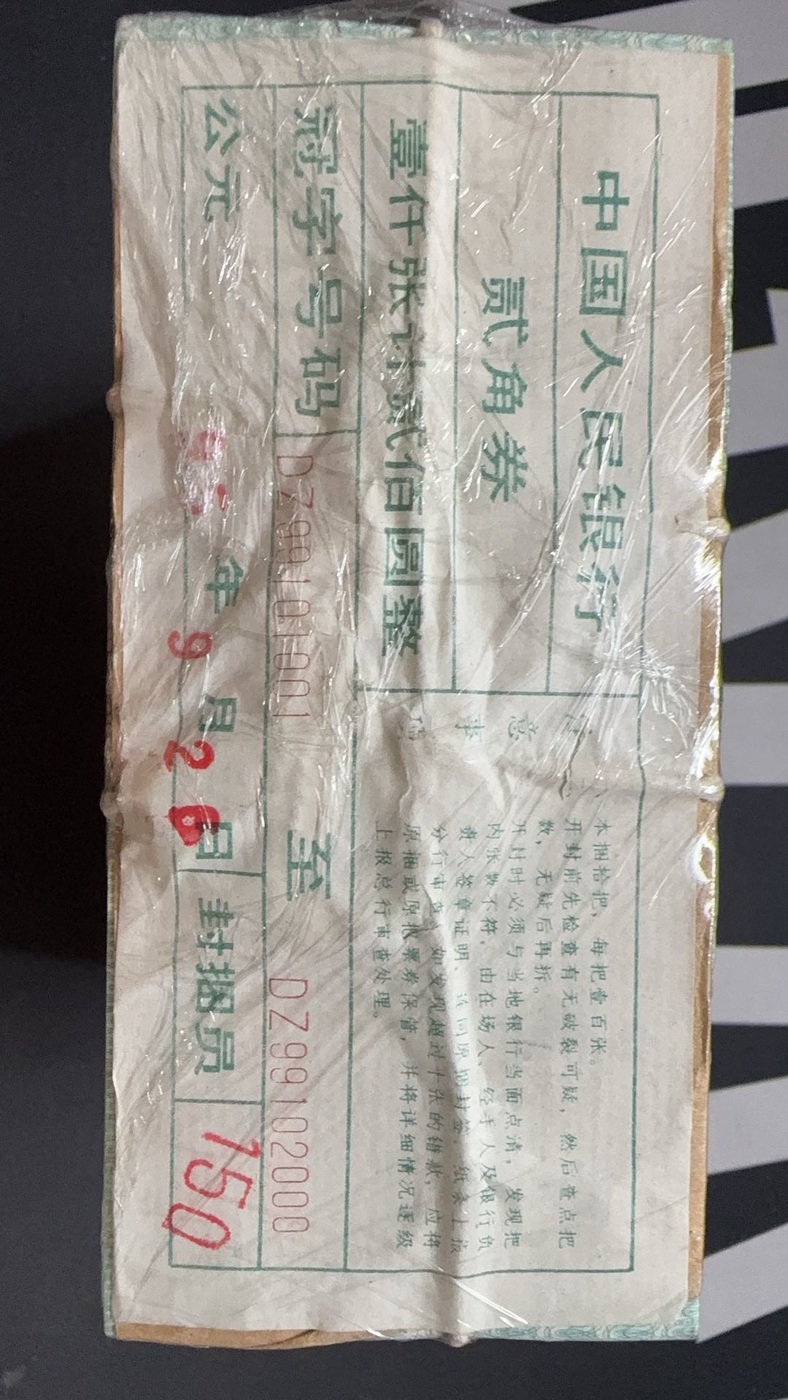 中国人民银行
贰角券
壹仟张计贰佰圆整
冠字号码 DZ99101001 至 DZ99102000
公元 年 9 月 2 日 封捆员 150
注意事项
本捆拾把，每把壹百张。
开封前先检查有无破裂可疑，然后查点把
数，无疑后再拆。
开封时必须与当地银行当面点清，发现把
内张数不符，由在场人、经手人及银行负
责人签章证明、连同原捆封签、纸条上报
分行审查，如发现超过十张的错款，应将
原捆或原把票券保管，并将详细情况逐级
上报总行审查处理。